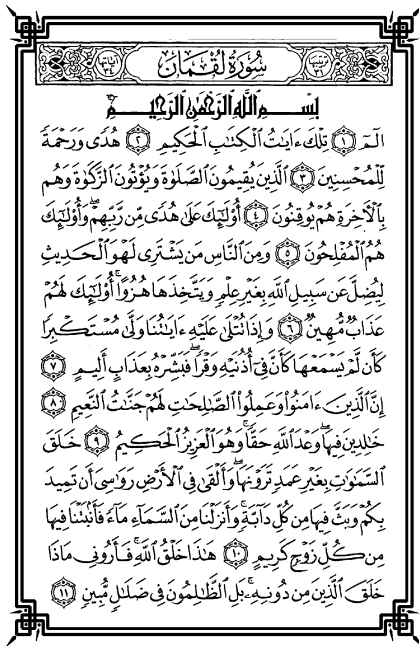 ترتيبها ٣١ سُورَةُ لُقْمَانَ آياتها ٣٤
بِسْمِ اللَّهِ الرَّحْمَٰنِ الرَّحِيمِ
الٓمٓ ١ تِلْكَ ءَايَٰتُ الْكِتَٰبِ الْحَكِيمِ ٢ هُدًى وَرَحْمَةً
لِّلْمُحْسِنِينَ ٣ الَّذِينَ يُقِيمُونَ الصَّلَوٰةَ وَيُؤْتُونَ الزَّكَوٰةَ وَهُم
بِالْءَاخِرَةِ هُمْ يُوقِنُونَ ٤ أُوْلَٰٓئِكَ عَلَىٰ هُدًى مِّن رَّبِّهِمْ ۖ وَأُوْلَٰٓئِكَ
هُمُ الْمُفْلِحُونَ ٥ وَمِنَ النَّاسِ مَن يَشْتَرِى لَهْوَ الْحَدِيثِ
لِيُضِلَّ عَن سَبِيلِ اللَّهِ بِغَيْرِ عِلْمٍ وَيَتَّخِذَهَا هُزُوًا ۚ أُوْلَٰٓئِكَ لَهُمْ
عَذَابٌ مُّهِينٌ ٦ وَإِذَا تُتْلَىٰ عَلَيْهِ ءَايَٰتُنَا وَلَّىٰ مُسْتَكْبِرًا
كَأَن لَّمْ يَسْمَعْهَا كَأَنَّ فِىٓ أُذُنَيْهِ وَقْرًا ۖ فَبَشِّرْهُ بِعَذَابٍ أَلِيمٍ ٧
إِنَّ الَّذِينَ ءَامَنُوا وَعَمِلُوا الصَّٰلِحَٰتِ لَهُمْ جَنَّٰتُ النَّعِيمِ ٨
خَٰلِدِينَ فِيهَا ۖ وَعْدَ اللَّهِ حَقًّا ۚ وَهُوَ الْعَزِيزُ الْحَكِيمُ ٩ خَلَقَ
السَّمَٰوَٰتِ بِغَيْرِ عَمَدٍ تَرَوْنَهَا ۖ وَأَلْقَىٰ فِى الْأَرْضِ رَوَٰسِىَ أَن تَمِيدَ
بِكُمْ وَبَثَّ فِيهَا مِن كُلِّ دَآبَّةٍ ۚ وَأَنزَلْنَا مِنَ السَّمَآءِ مَآءً فَأَنۢبَتْنَا فِيهَا
مِن كُلِّ زَوْجٍ كَرِيمٍ ١٠ هَٰذَا خَلْقُ اللَّهِ فَأَرُونِى مَاذَا
خَلَقَ الَّذِينَ مِن دُونِهِ ۚ بَلِ الظَّٰلِمُونَ فِى ضَلَٰلٍ مُّبِينٍ ١١